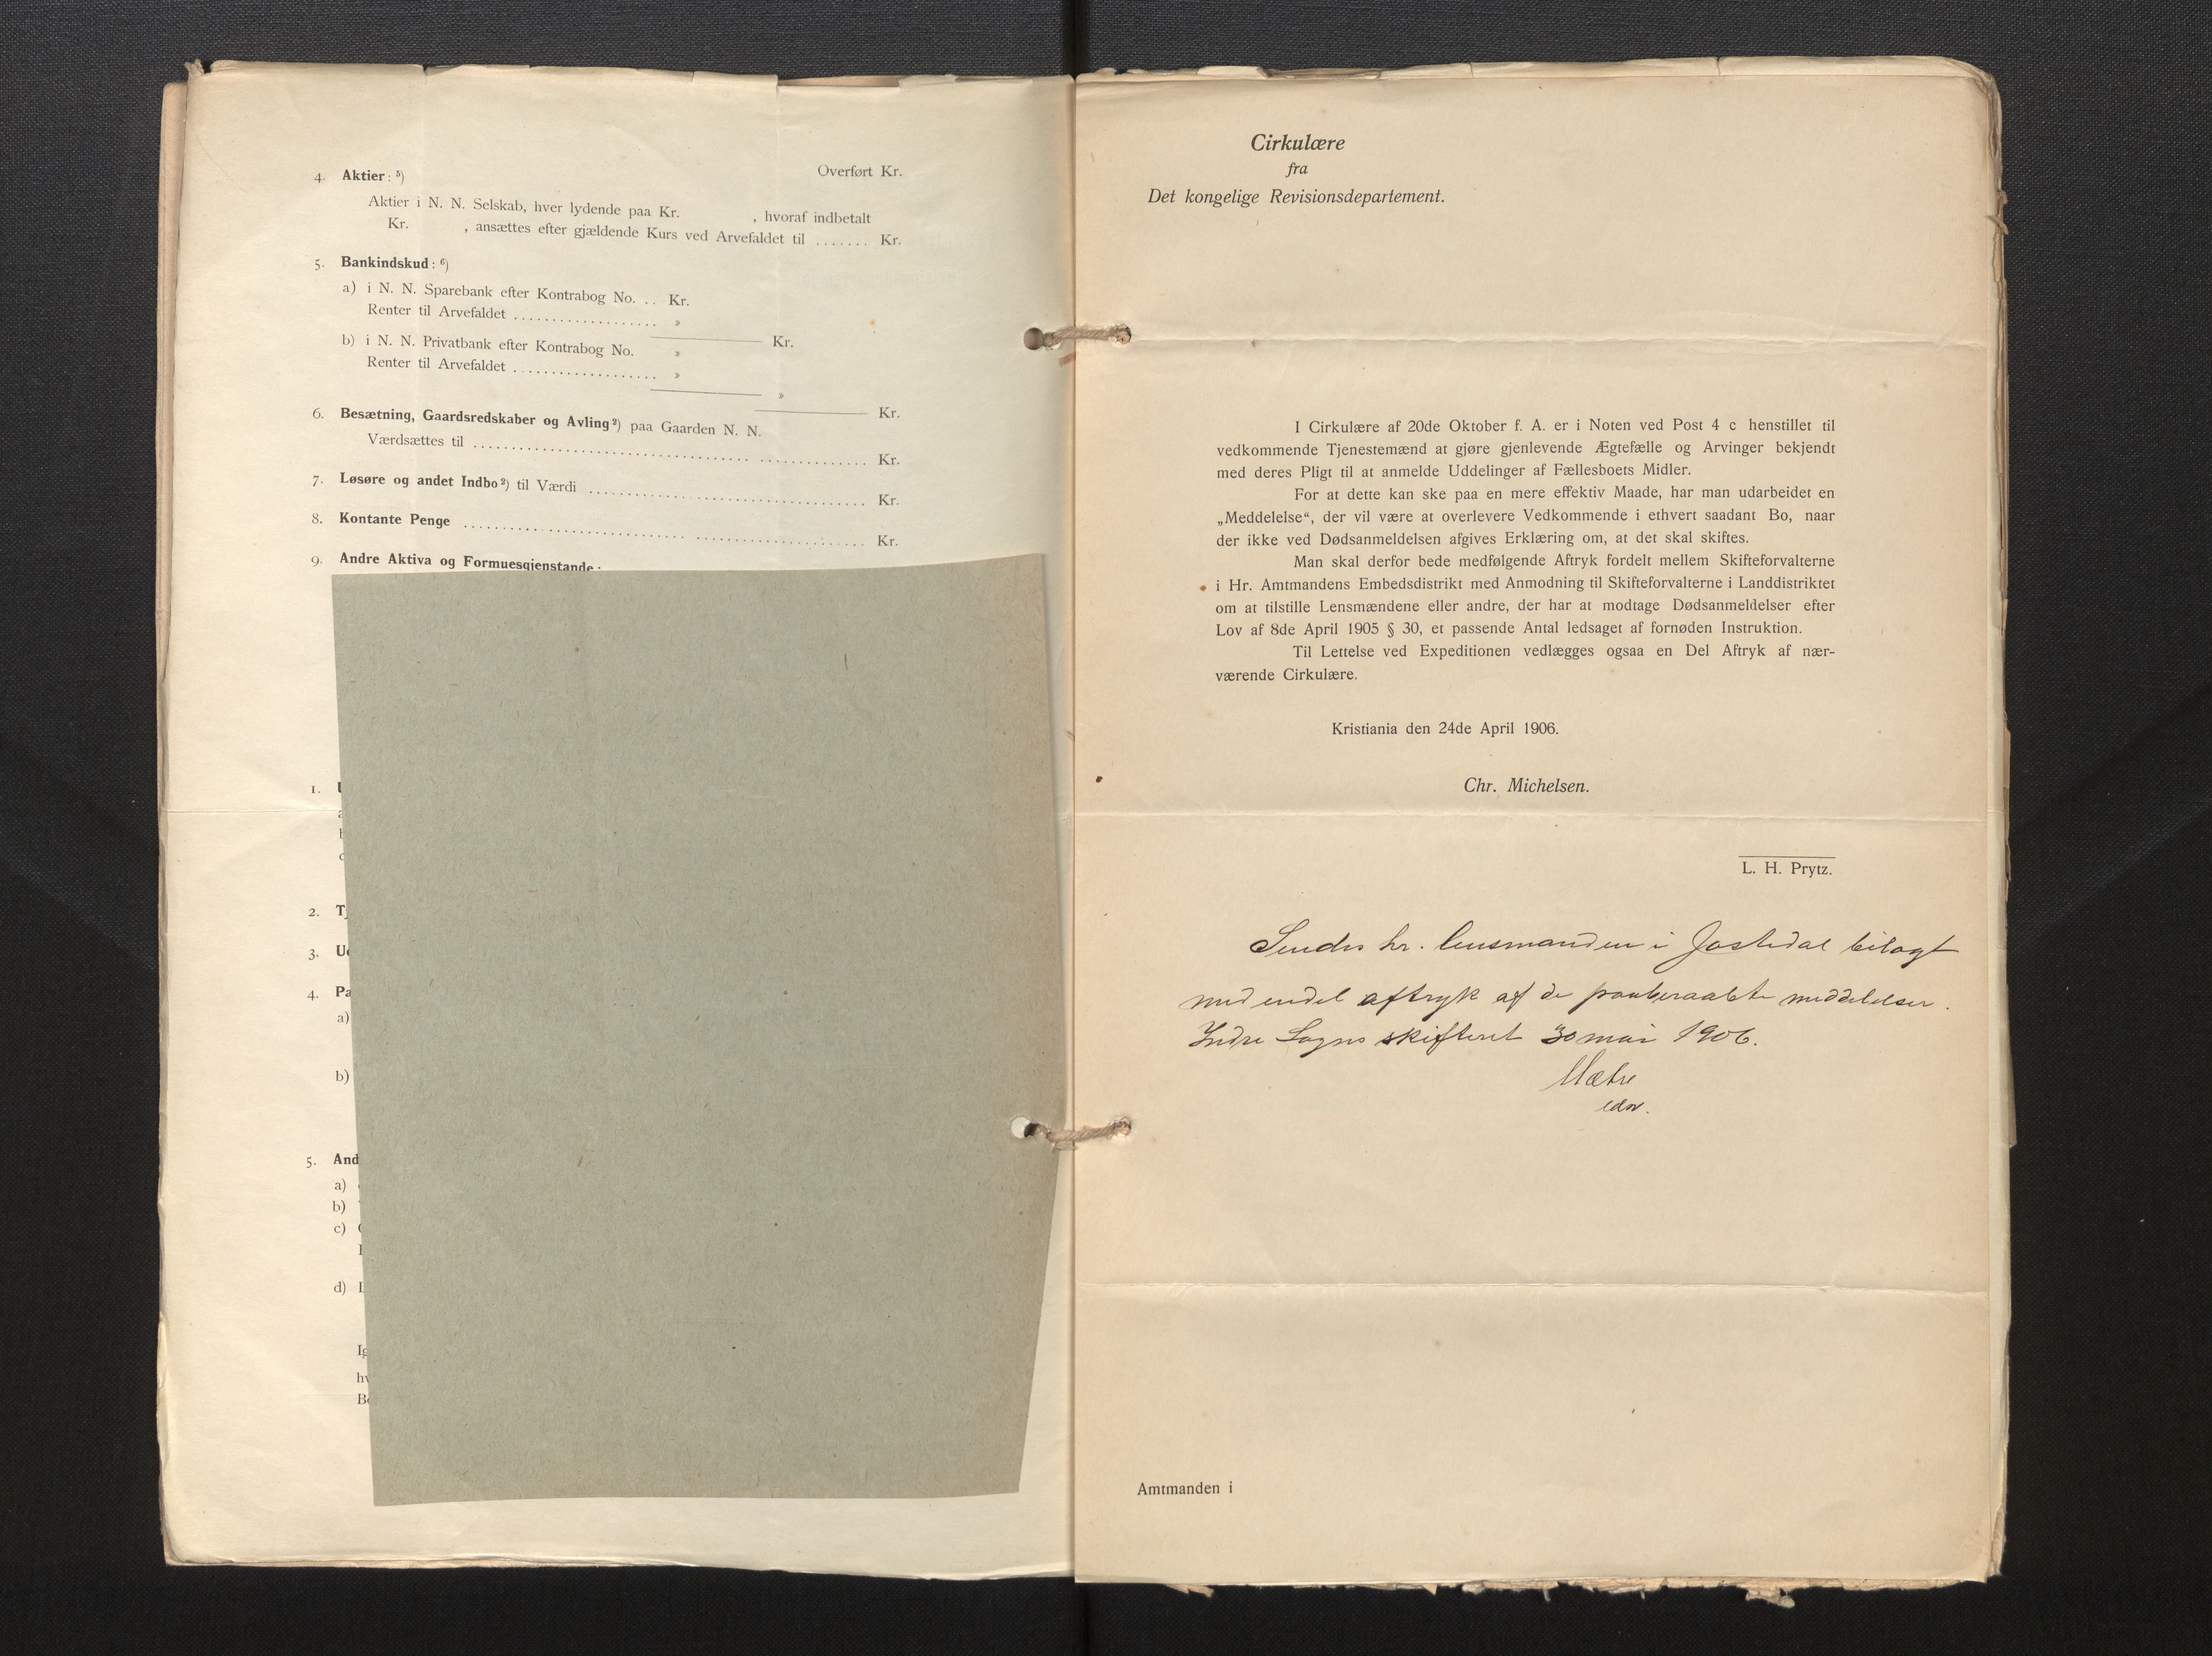 Overført Kr.
4. Aktier: ⁵)
Aktier i N. N. Selskab, hver lydende paa Kr. , hvoraf indbetalt
Kr. , ansættes efter gjældende Kurs ved Arvefaldet til ....... Kr.
5. Bankindskud: ⁶)
a) i N. N. Sparebank efter Kontrabog No. .. Kr.
Renter til Arvefaldet ................... »
Kr.
b) i N. N. Privatbank efter Kontrabog No. »
Renter til Arvefaldet ................... »
»
Kr.
6. Besætning, Gaardsredskaber og Avling ²) paa Gaarden N. N.
Værdsættes til .................................................... Kr.
7. Løsøre og andet Indbo ²) til Værdi ..................................... Kr.
8. Kontante Penge ..................................................... Kr.
9. Andre Aktiva og Formuesgjenstande:
1.
2.
3.
4. Pa
a)
b)
5. And
a)
b)
c)
d)
Ig
hv
Be
Cirkulære
fra
Det kongelige Revisionsdepartement.
I Cirkulære af 20de Oktober f. A. er i Noten ved Post 4 c henstillet til
vedkommende Tjenestemænd at gjøre gjenlevende Ægtefælle og Arvinger bekjendt
med deres Pligt til at anmelde Uddelinger af Fællesboets Midler.
For at dette kan ske paa en mere effektiv Maade, har man udarbeidet en
„Meddelelse“, der vil være at overlevere Vedkommende i ethvert saadant Bo, naar
der ikke ved Dødsanmeldelsen afgives Erklæring om, at det skal skiftes.
Man skal derfor bede medfølgende Aftryk fordelt mellem Skifteforvalterne
i Hr. Amtmandens Embedsdistrikt med Anmodning til Skifteforvalterne i Landdistriktet
om at tilstille Lensmændene eller andre, der har at modtage Dødsanmeldelser efter
Lov af 8de April 1905 § 30, et passende Antal ledsaget af fornøden Instruktion.
Til Lettelse ved Expeditionen vedlægges ogsaa en Del Aftryk af nær-
værende Cirkulære.
Kristiania den 24de April 1906.
Chr. Michelsen.
L. H. Prytz.
Sendes hr. lensmanden i Jostedal bilagt
med endel aftryk af de paaberaabte meddelelser.
Indre Sogns skifteret 30 mai 1906.
Amtmanden i